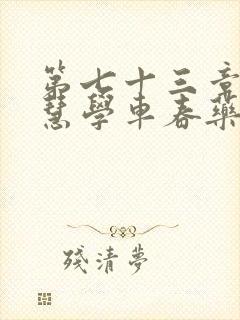 第七十三章
慧學車春藥
殘清夢